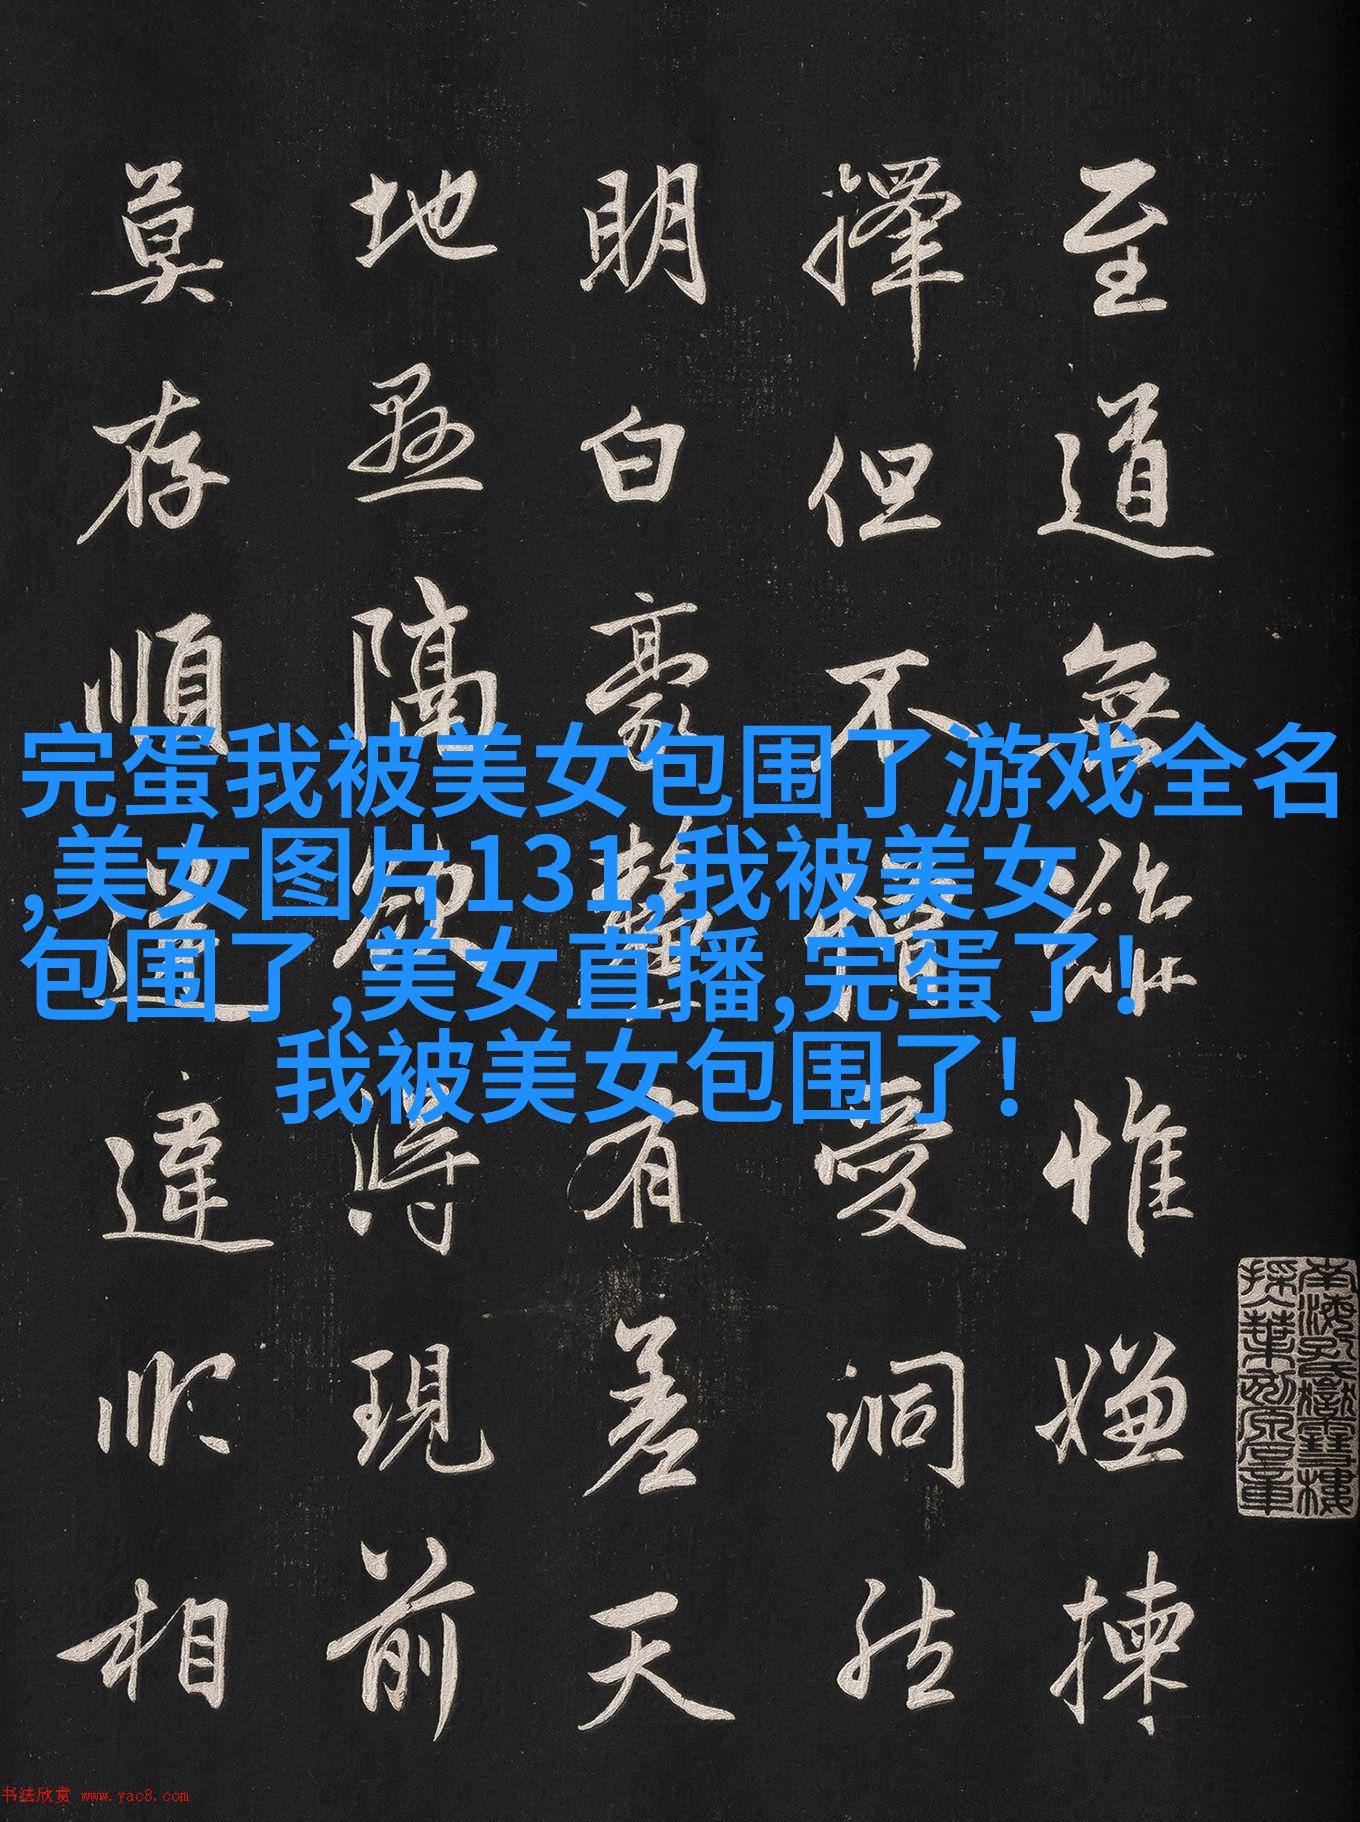 至道無難惟嫌揀
擇但不憎愛洞然
明白豪有差天
地懸隔欲得現前
莫存順逆違順相
完蛋我被美女包围了游戏全名
,美女图片131,我被美女
包围了,美女直播,完蛋了!
我被美女包围了!
南海孔氏嶽雪樓
书法欣赏 www.yac8.com